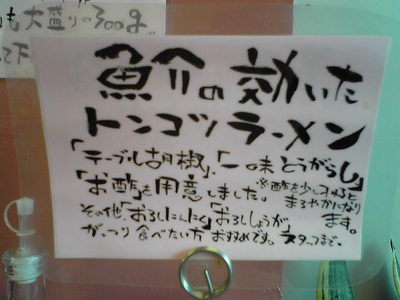 も大盛りの300g
て下
魚介の効いた
トンコツラーメン
「テーブル胡椒」、「一味とうがらし」
「お酢」も用意しました。
※酢を少し入れると
まろやかになります。
その他、「おろしにんにく」「おろししょうが」
がっつり食べたい方おすすめです。スタッフまで、